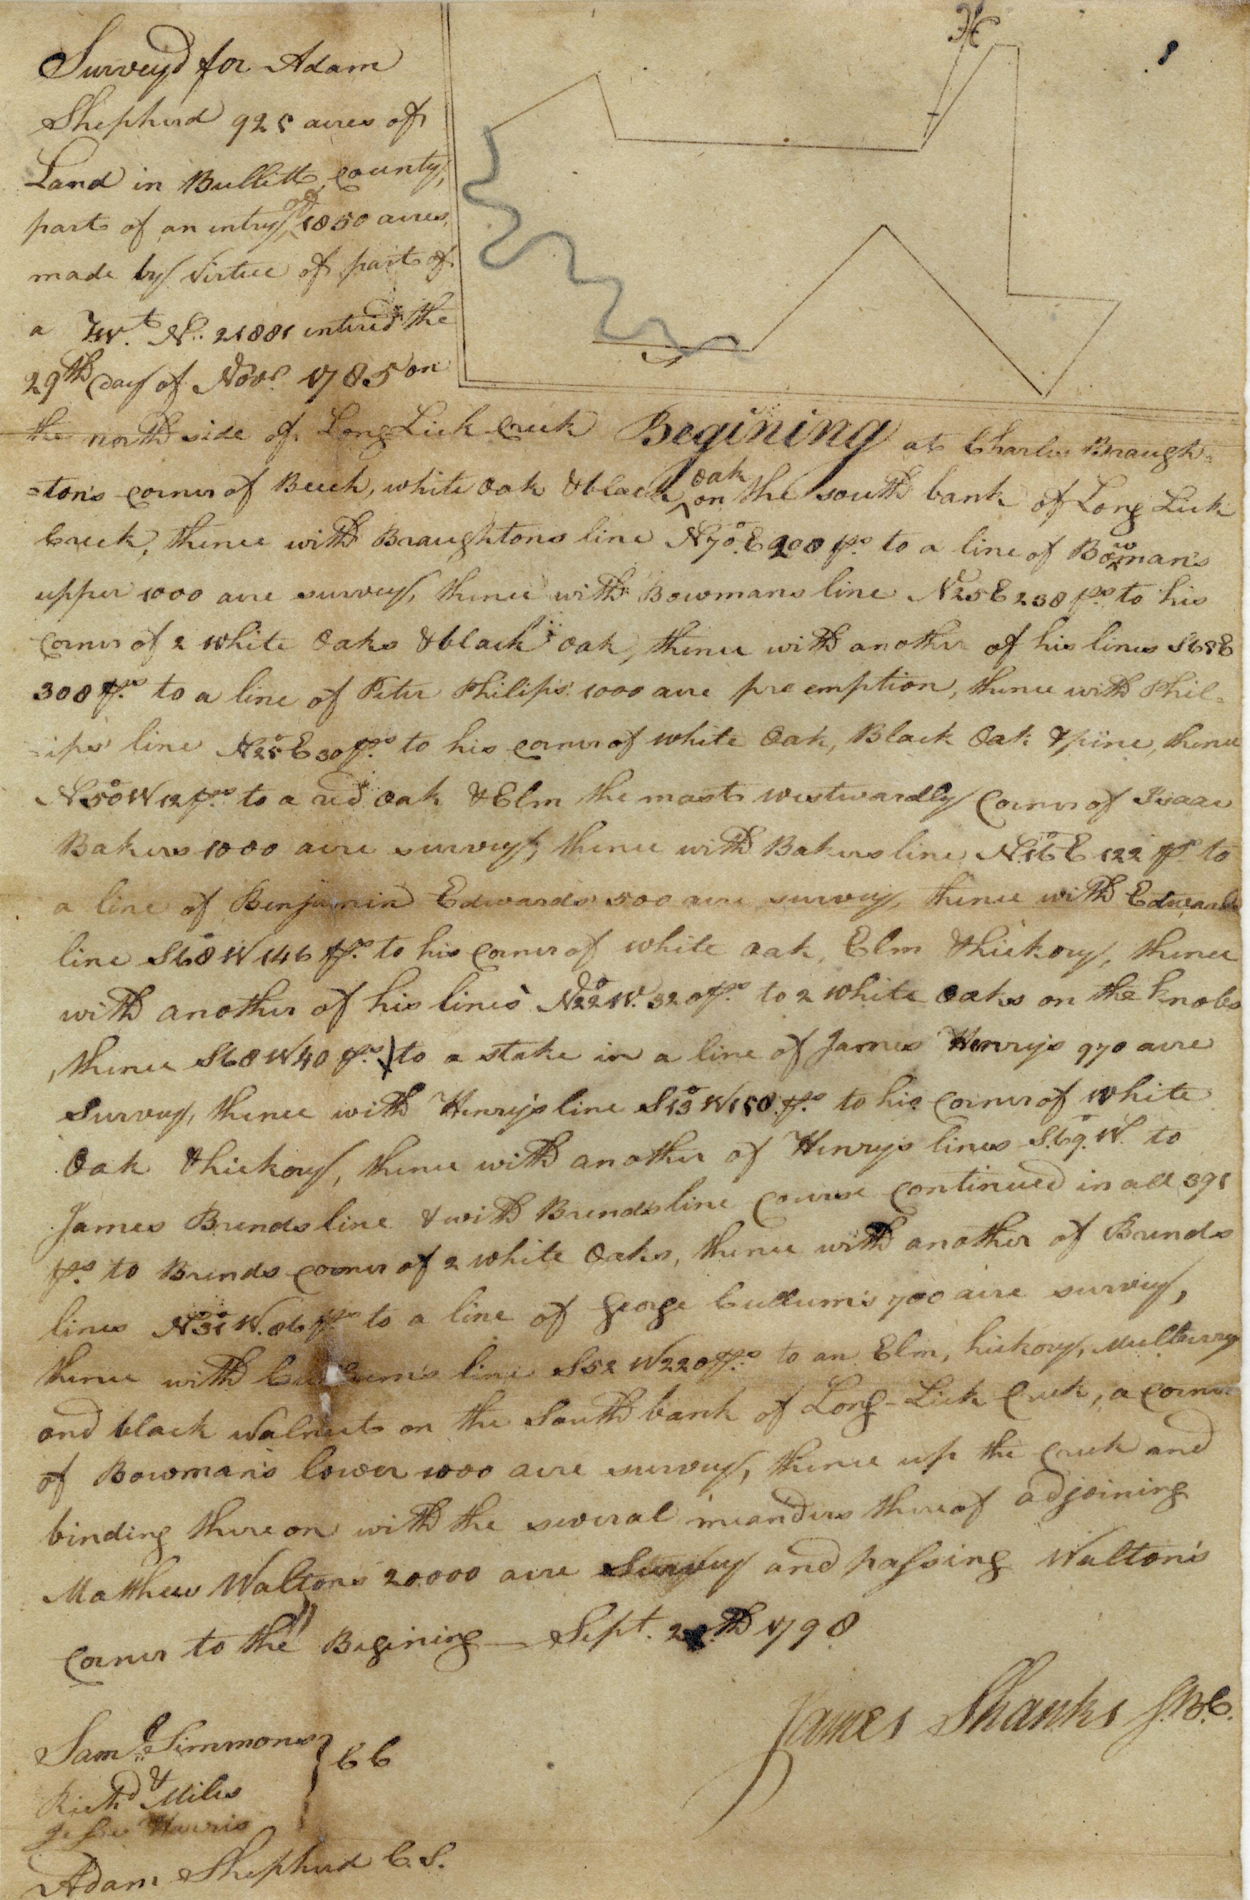 Survey'd for Adam
Shepherd 925 acres of
Land in Bullitt County,
part of an entry of 1850 acres,
made by Virtue of part of
a Tw.t N.. 21881 entered the
29th day of Nov.r 1785 on
the north side of Long Lick Creek Begining at Charles Braugh=
=ton's corner of Beech, white oak & black oak on the south bank of Long Lick
Creek, thence with Braughtons line N70°E 208 ps to a line of Bowman's
upper 1000 acre survey, thence with Bowmans line N25E 238 ps to his
corner of 2 white Oaks & black Oak, thence with another of his lines S68E
308 ps to a line of Peter Philips' 1000 acre preemption, thence with Phil-
-ips' line N25°E 30 ps to his corner of white Oak, Black Oak & pine, thence
N50°W 12 ps to a red Oak & Elm the most westwardly Corner of Isaac
Bakers 1000 acre survey, thence with Bakers line N16°E 122 ps to
a line of Benjamin Edwards 500 acre survey, thence with Edwards
line S68°W 146 ps to his corner of white oak, Elm & hickory, thence
with another of his lines N22°W. 320 ps to 2 white Oaks on the knobs
, thence S68W40 ps to a stake in a line of James Henry's 970 acre
Survey, thence with Henry's line S13°W 150 ps to his corner of white
Oak & hickory, thence with another of Henry's lines S.69.W. to
James Brends line & with Brends line course continued in all 391
ps to Brends corner of 2 white Oaks, thence with another of Brends
lines N31°W. 86 ps to a line of George Cullum's 700 acre survey,
thence with Cullum's line S52 W220 ps to an Elm, hickory, Mulberry
and black walnut on the South bank of Long-Lick Creek, a corner
of Bowman's lower 1000 acre survey, thence up the creek and
binding thereon with the several meanders thereof adjoining
Matthew Waltons 20000 acre Survey and passing Walton's
corner to the Begining — Sept. th 1798
James Shanks S.B.C.
Sam.l Simmons
Rich.d Miles } C C
Jesse Harris
Adam Shepherd C.S.